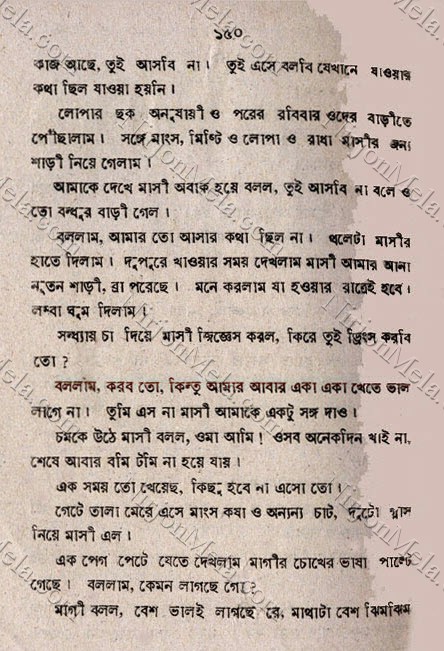 ১৫০
কাজ আছে, তুই আসবি না। তুই এসে বলবি যেখানে যাওয়ার
কথা ছিল যাওয়া হয়নি।
লোপার ছক অনুযায়ী ও পরের রবিবার ওদের বাড়ীতে
পৌঁছালাম। সঙ্গে মাংস, মিষ্টি ও লোপা ও রাধা মাসীর জন্য
শাড়ী নিয়ে গেলাম।
আমাকে দেখে মাসী অবাক হয়ে বলল, তুই আসবি না বলে ও
তো বন্ধুর বাড়ী গেল।
বললাম, আমার তো আসার কথা ছিল না। থলেটা মাসীর
হাতে দিলাম। দুপুরে খাওয়ার সময় দেখলাম মাসী আমার আনা
নূতন শাড়ী, ব্রা পরেছে। মনে করলাম যা হওয়ার রাত্রেই হবে।
লম্বা ঘুম দিলাম।
সন্ধ্যায় চা দিয়ে মাসী জিজ্ঞেস করল, কিরে তুই ড্রিংস করবি
তো ?
বললাম, করব তো, কিন্তু আমার আবার একা একা খেতে ভাল
লাগে না। তুমি এস না মাসী আমাকে একটু সঙ্গ দাও।
চমকে উঠে মাসী বলল, ওমা আমি! ওসব অনেকদিন খাই না,
শেষে আবার বমি টমি না হয়ে যায়।
এক সময় তো খেয়েছ, কিছু হবে না এসো তো।
গেটে তালা মেরে এসে মাংস কষা ও অন্যান্য চাট, দুটো গ্লাস
নিয়ে মাসী এল।
এক পেগ পেটে যেতে দেখলাম মাগীর চোখের ভাষা পাল্টে
গেছে। বললাম, কেমন লাগছে গো?
মাগী বলল, বেশ ভালই লাগছে রে, মাথাটা বেশ ঝিমঝিম
NirjonMela.com